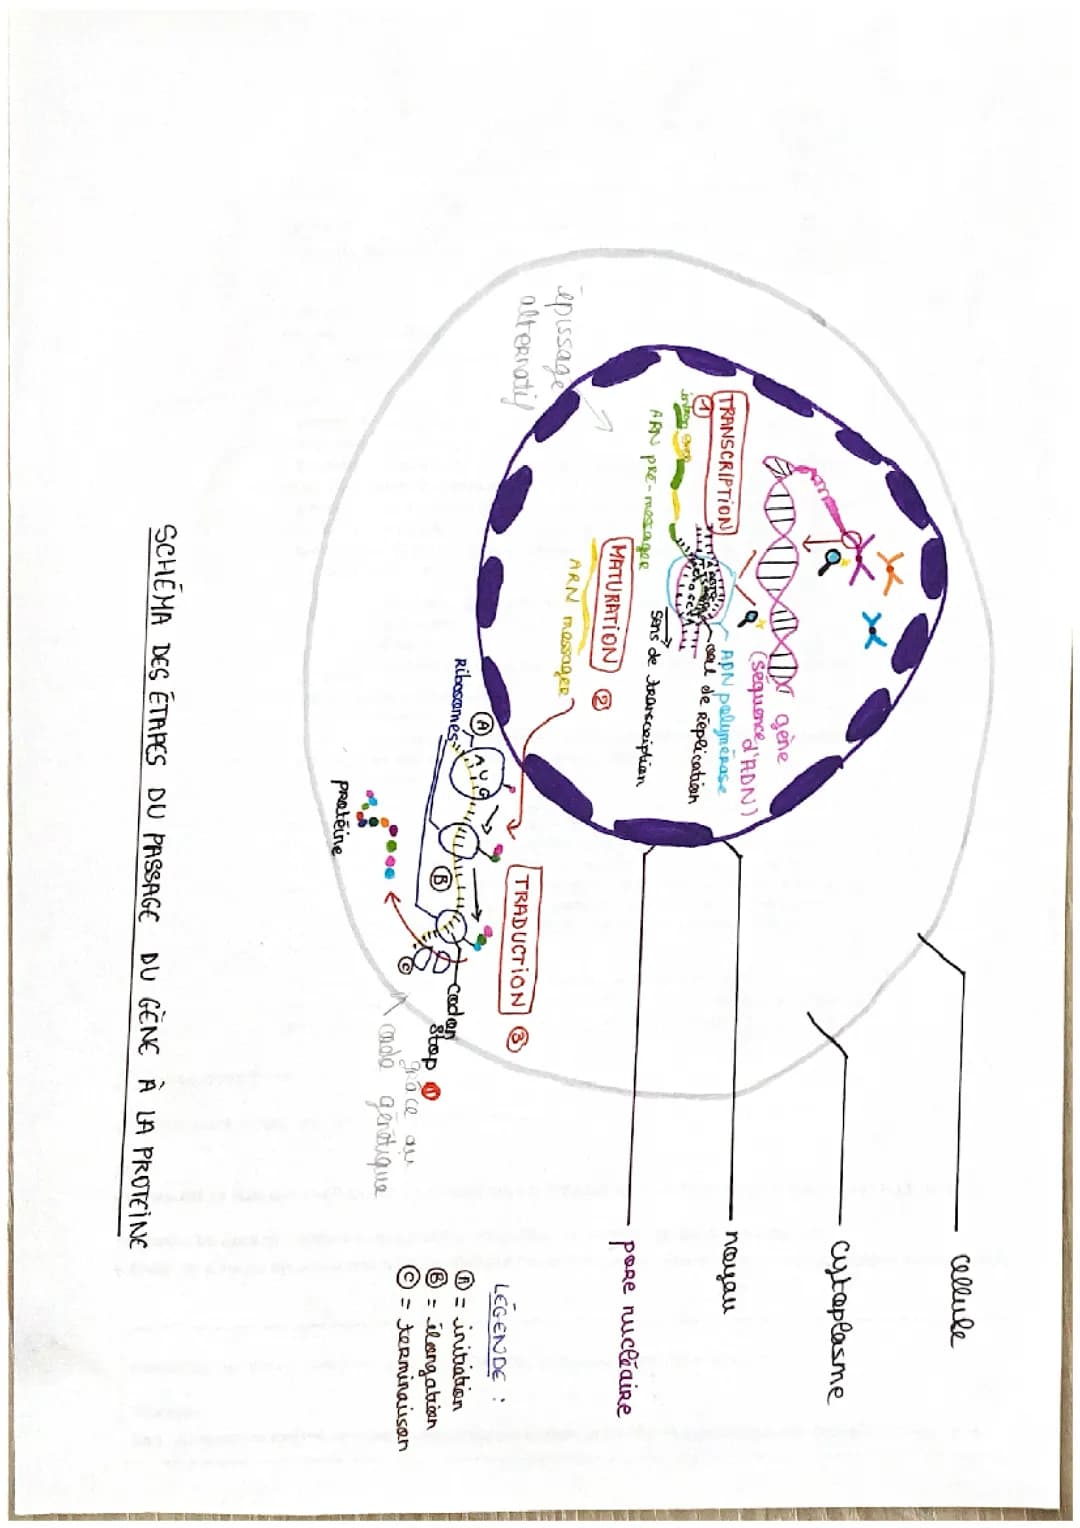 cellule
cytoplasme
noyau
pore nucléaire
gène
(séquence
d'ADN)
TRANSCRIPTION
1
ADN polymérase
œil de réplication
sens de transcription
intron exon
ARN pré-messager
MATURATION 2
ARN messager
épissage
alternatif
TRADUCTION 3
Ribosomes
A
AUG
B
C
codon
stop
grâce au
code génétique
protéine
LÉGENDE :
A = initiation
B = élongation
C = terminaison
SCHÉMA DES ÉTAPES DU PASSAGE DU GÈNE À LA PROTÉINE